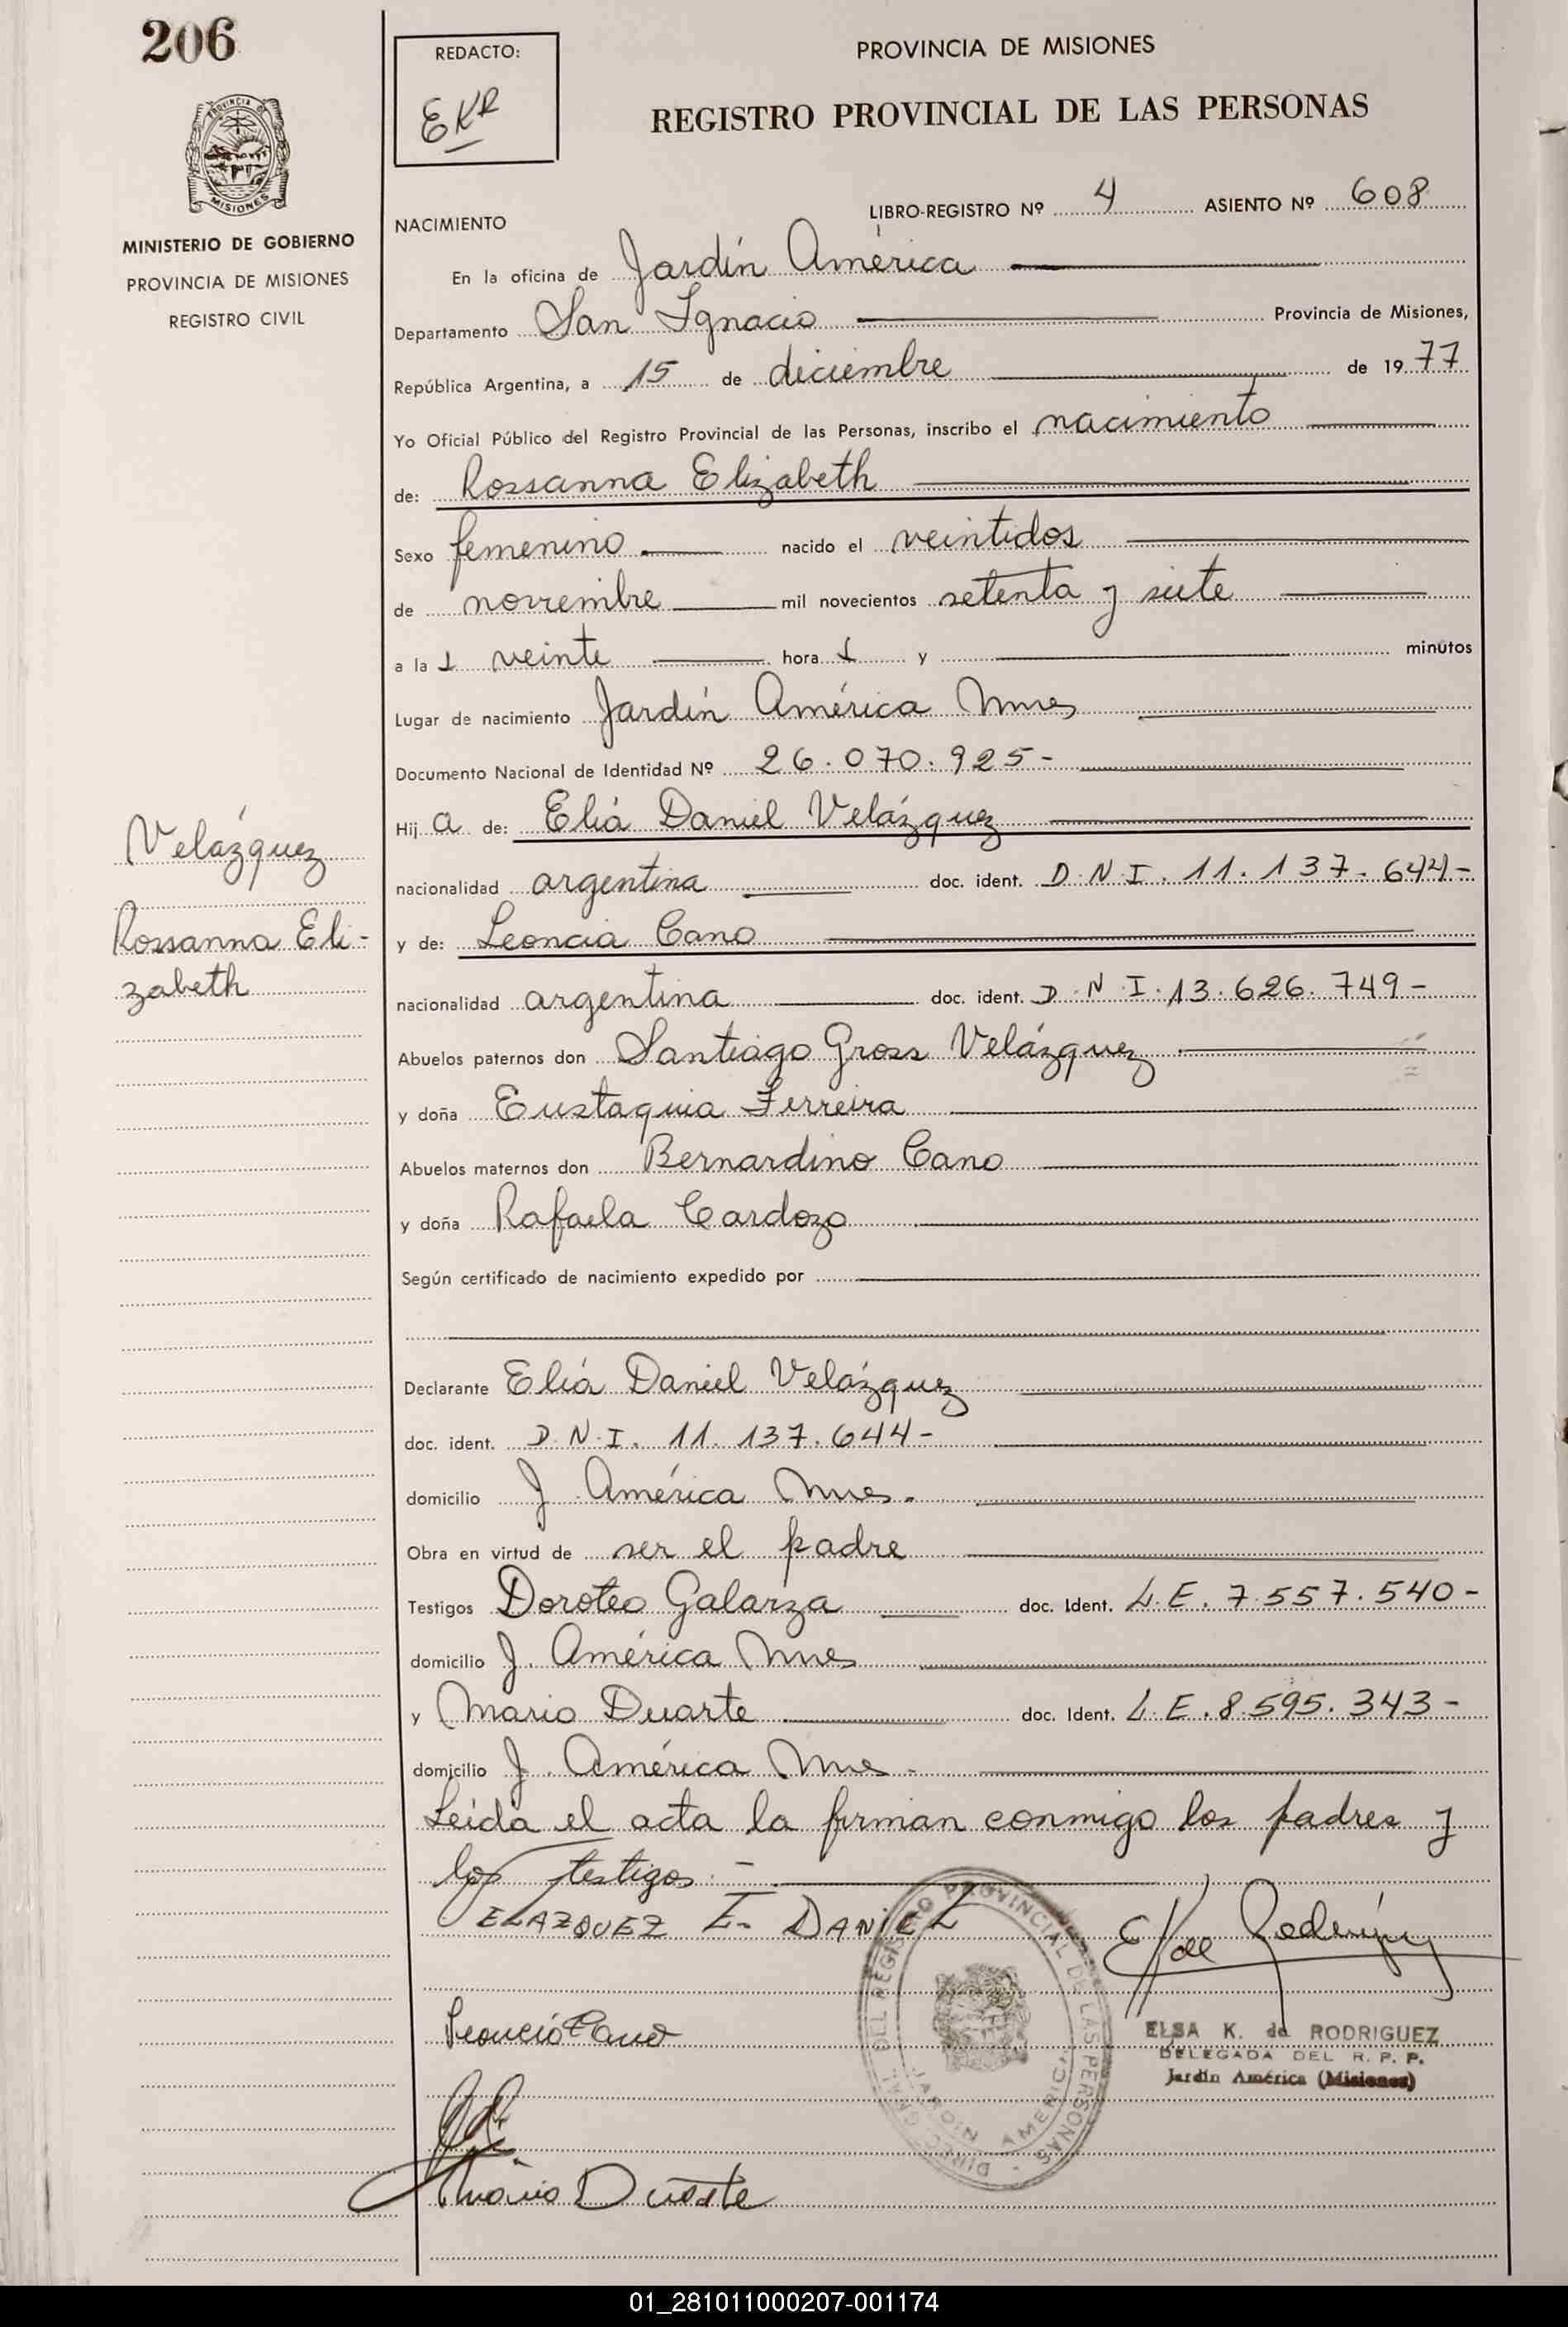 206
PROVINCIA
MISIONES
MINISTERIO DE GOBIERNO
PROVINCIA DE MISIONES
REGISTRO CIVIL
Velázquez
Rossanna Eli-
zabeth
REDACTO:
EKR
PROVINCIA DE MISIONES
REGISTRO PROVINCIAL DE LAS PERSONAS
LIBRO-REGISTRO Nº 4 ASIENTO Nº 608
NACIMIENTO
En la oficina de Jardín América
Departamento San Ignacio Provincia de Misiones,
República Argentina, a 15 de diciembre de 1977
Yo Oficial Público del Registro Provincial de las Personas, inscribo el nacimiento
de: Rossanna Elizabeth
Sexo femenino nacido el veintidos
de noviembre mil novecientos setenta y siete
a la s veinte hora s y minutos
Lugar de nacimiento Jardín América Mnes
Documento Nacional de Identidad Nº 26.070.925-
Hij a de: Eliá Daniel Velázquez
nacionalidad argentina doc. ident. D.N.I. 11.137.644-
y de: Leoncia Cano
nacionalidad argentina doc. ident. D.N.I. 13.626.749-
Abuelos paternos don Santiago Gross Velázquez
y doña Eustaquia Ferreira
Abuelos maternos don Bernardino Cano
y doña Rafaela Cardozo
Según certificado de nacimiento expedido por
Declarante Eliá Daniel Velázquez
doc. ident. D.N.I. 11.137.644-
domicilio J. América Mnes.
Obra en virtud de ser el padre
Testigos Doroteo Galarza doc. Ident. L.E. 7.557.540-
domicilio J. América Mnes
y Mario Duarte doc. Ident. L.E. 8.595.343-
domicilio J. América Mnes.
Leida el acta la firman conmigo los padres y
los testigos.-
VELAZQUEZ E. DANIEL
EK de Rodríguez
Leoncia Cano
ELSA K. de RODRIGUEZ
DELEGADA DEL R. P. P.
Jardín América (Misiones)
DIREC. GRAL. DEL REGISTRO PROVINCIAL DE LAS PERSONAS
JARDIN AMERICA
Mario Duarte
01_281011000207-001174